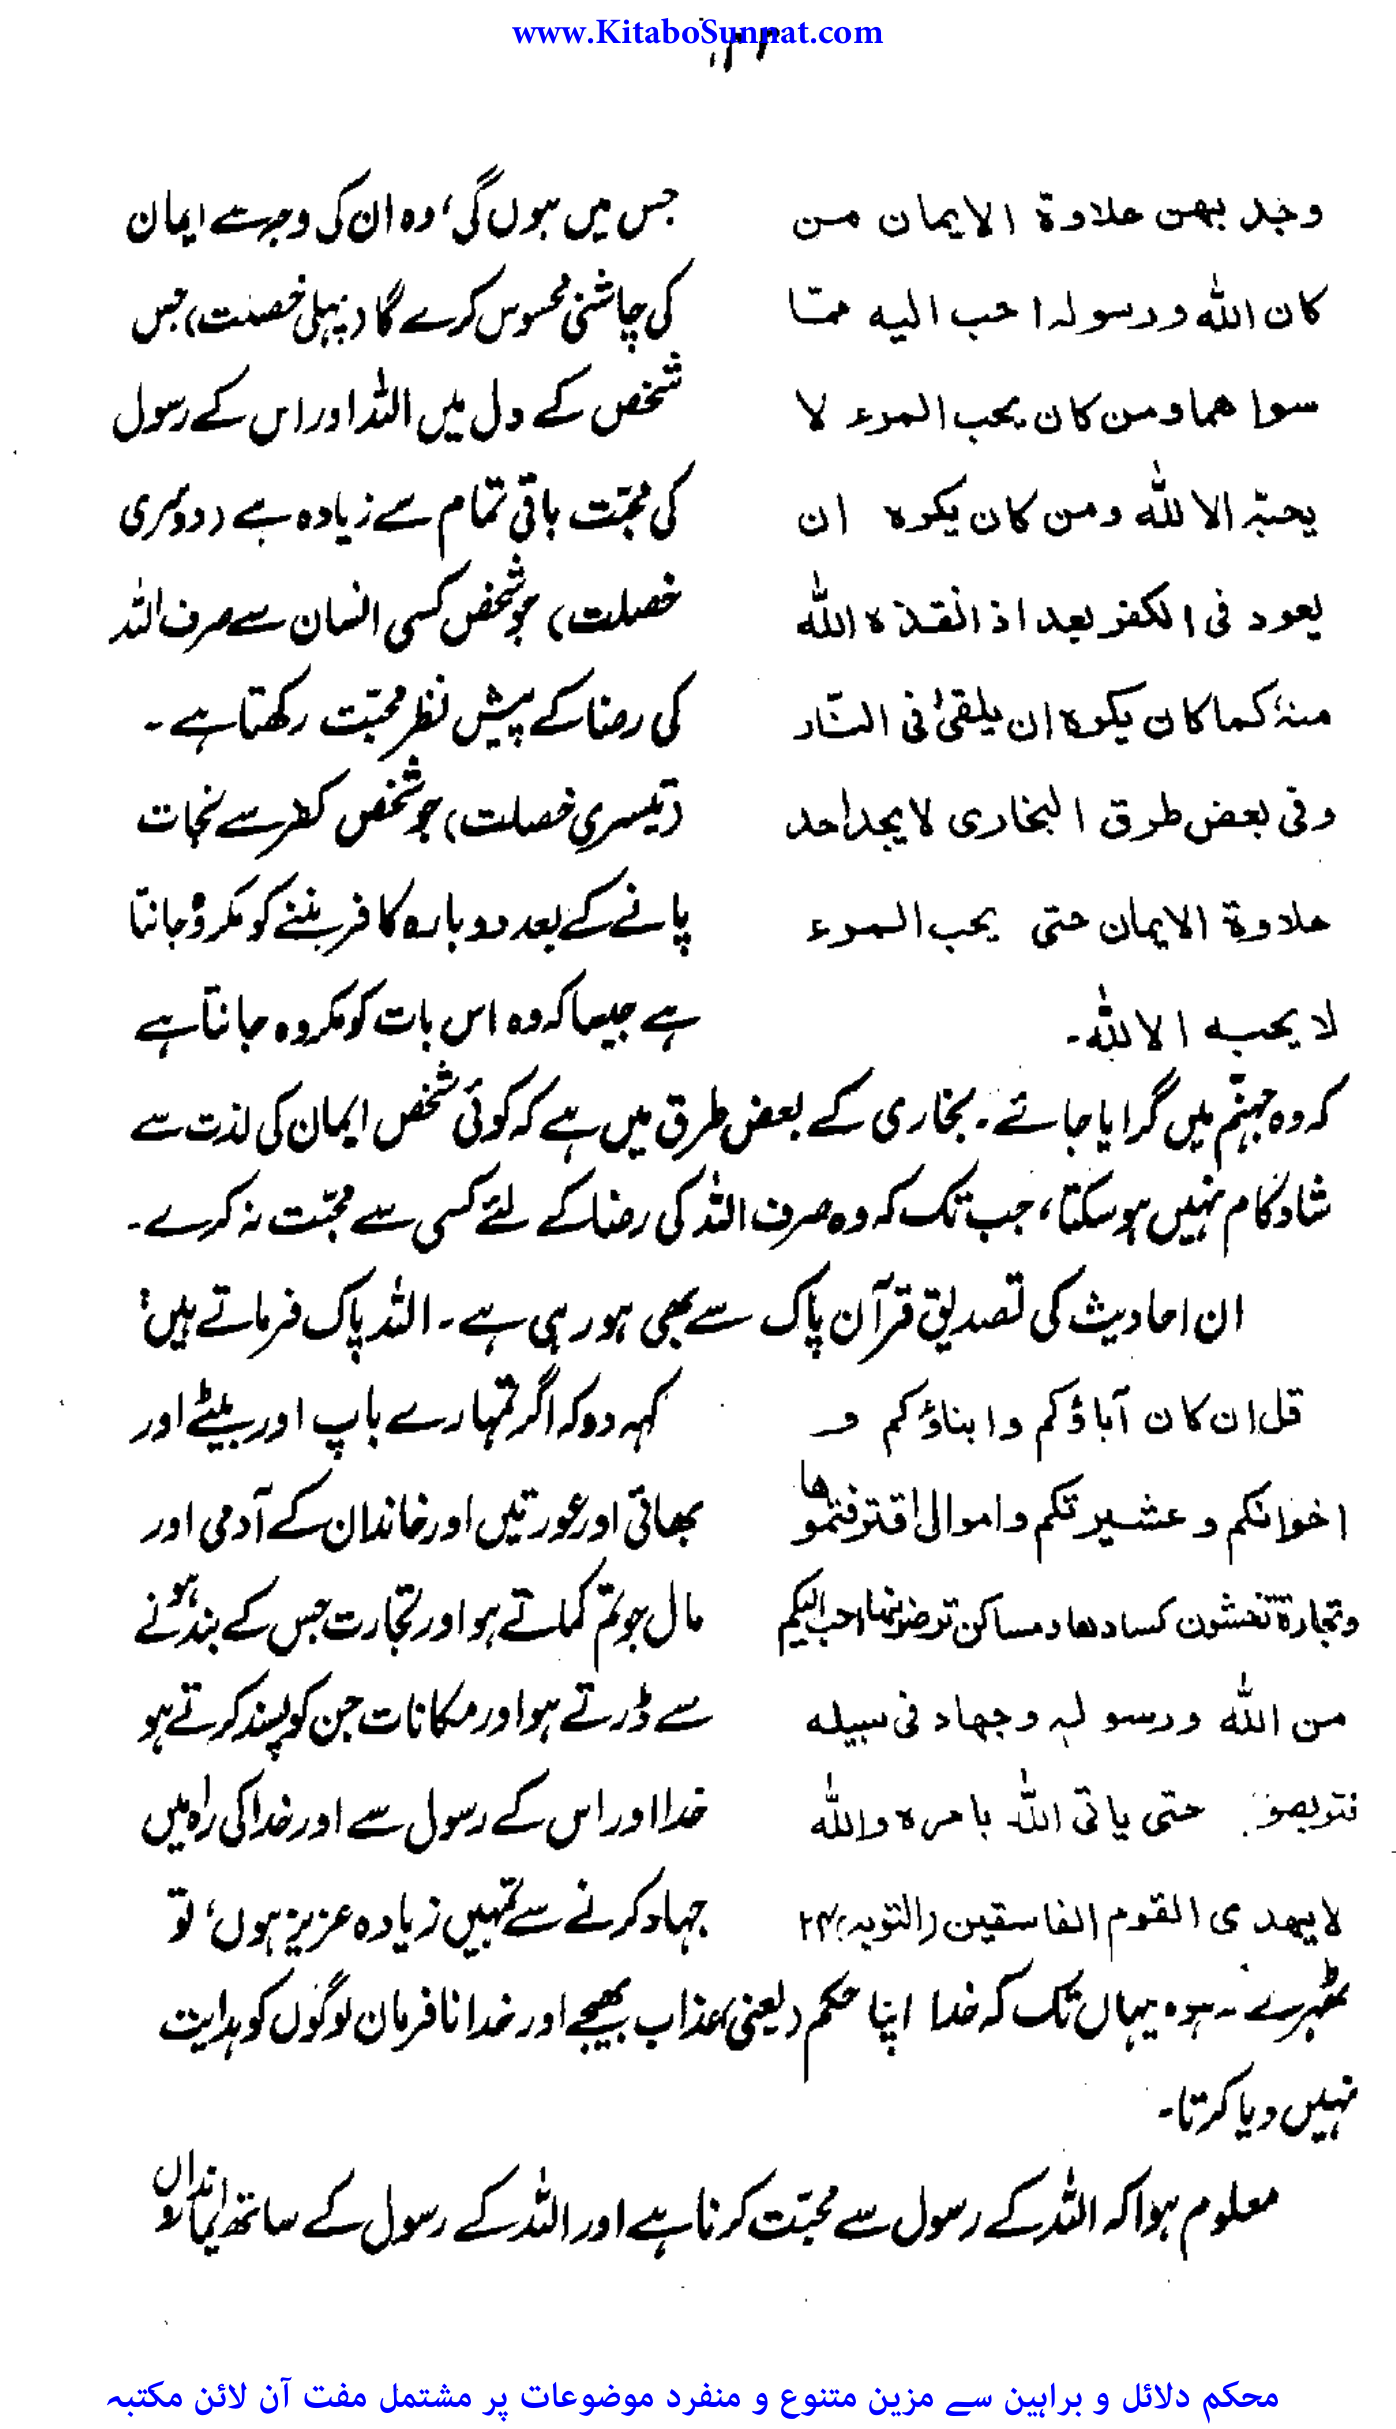 www.KitaboSunnat.com
وجد بهن حلاوة الايمان من
كان الله ورسوله احب اليه ممّا
سوا هما ومن كان يحب المرء لا
يحبّه الا لله ومن كان يكره ان
يعود فى الكفر بعد اذ انقذه الله
منه كما كان يكره ان يلقىٰ فى النّار
وفى بعض طرق البخارى لا يجد احد
حلاوة الايمان حتى يحب المرء
لا يحبه الا لله۔
جس میں ہوں گی، وہ ان کی وجہ سے ایمان
کی چاشنی محسوس کرے گا (پہلی خصلت) جس
شخص کے دل میں اللہ اور اس کے رسول
کی محبّت باقی تمام سے زیادہ ہے (دوسری
خصلت) جو شخص کسی انسان سے صرف اللہ
کی رضا کے پیش نظر محبّت رکھتا ہے۔
(تیسری خصلت) جو شخص کفر سے نجات
پانے کے بعد دوبارہ کافر بننے کو مکروہ جانتا
ہے جیسا کہ وہ اس بات کو مکروہ جانتا ہے
کہ وہ جہنّم میں گرایا جائے۔ بخاری کے بعض طرق میں ہے کہ کوئی شخص ایمان کی لذت سے
شادکام نہیں ہو سکتا، جب تک کہ وہ صرف اللہ کی رضا کے لئے کسی سے محبّت نہ کرے۔
ان احادیث کی تصدیق قرآن پاک سے بھی ہو رہی ہے۔ اللہ پاک فرماتے ہیں؛
قل ان كان آباؤكم وابناؤكم و
اخوانكم و عشيرتكم واموال اقترفتموها
وتجارة تخشون كسادها ومساكن ترضونها احب اليكم
من الله ورسوله وجهاد فى سبيله
فتربصو حتى ياتى الله بامره والله
لا يهدى القوم الفاسقين (التوبه: ۲۴)
کہہ دو کہ اگر تمہارے باپ اور بیٹے اور
بھائی اور عورتیں اور خاندان کے آدمی اور
مال جو تم کماتے ہو اور تجارت جس کے بند ہونے
سے ڈرتے ہو اور مکانات جن کو پسند کرتے ہو
خدا اور اس کے رسول سے اور خدا کی راہ میں
جہاد کرنے سے تمہیں زیادہ عزیز ہوں، تو
ٹھہرے رہو یہاں تک کہ خدا اپنا حکم (یعنی) عذاب بھیجے اور خدا نافرمان لوگوں کو ہدایت
نہیں دیا کرتا۔
معلوم ہوا کہ اللہ کے رسول سے محبّت کرنا ہے اور اللہ کے رسول کے ساتھ ایمانداں
محکم دلائل و براہین سے مزین متنوع و منفرد موضوعات پر مشتمل مفت آن لائن مکتبہ